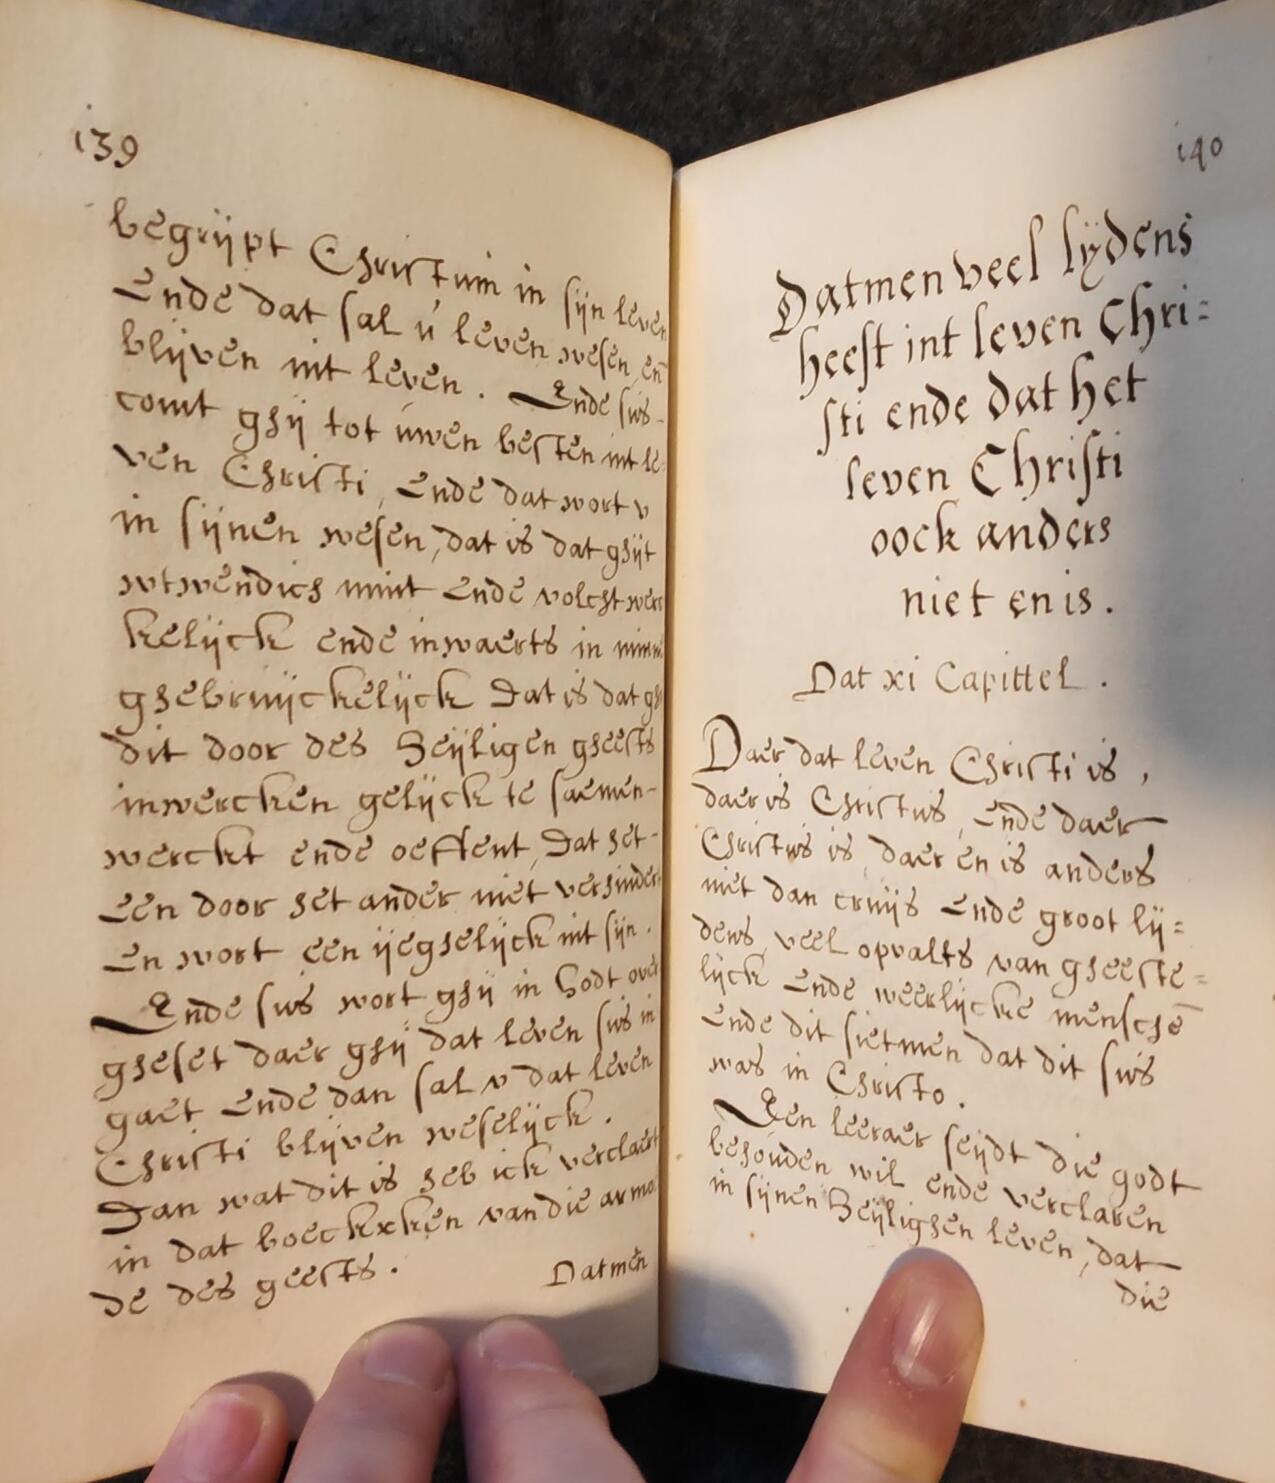 139
begrijpt Christum in sijn leven
Ende dat sal ú leven wesen, en̄
blijven int leven. Ende sús
comt ghij tot úwen besten int le-
ven Christi, Ende dat wort v
in sijnen wesen, dat is dat ghijt
wtwendich mint Ende volcht werc
kelijck ende inwaerts in
ghebruijckelijck Dat is dat
dit door des Heijligen gheests
inwercken gelijck te saemen-
werckt ende oeffent, Dat het-
Een door het ander niet verhindert
En wort een ijeghelijck int sijn.
Ende sús wort ghij in Godt over
gheset daer ghij dat leven sús in
gaet Ende dan sal v dat leven
Christi blijven weselijck.
Dan wat dit is heb ick verclaert
in dat boeckxken van die armo
de des geests.
Datmen
140
Datmen veel lÿdens
heest int leven Chri=
sti ende dat het
leven Christi
oock anders
niet en is.
Dat xi Capittel.
Daer dat leven Christi is,
daer is Christús, Ende daer
Christús is, daer en is anders
niet dan crúijs Ende groot lij=
dens, veel opvalts van gheeste=
lijck Ende weerlijcke menschē
Ende dit sietmen dat dit sús
was in Christo.
Een leeraer seijdt die godt
behoúden wil ende verclaren
in sijnen Heijlighen leven, dat
die